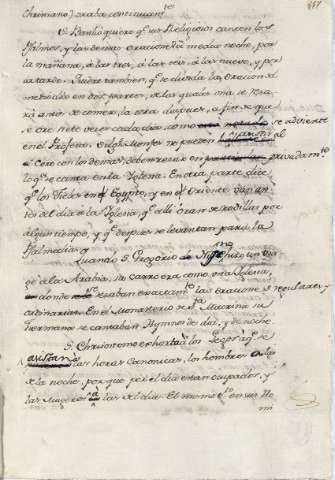 Christiano) oraba continuam.te
S. Basilio quiere q.e los Religiosos canten los
Psalmos, y las demas oraciones a media noche, por
la mañana, à las tres, à las seis, à las nueve, y por
la tarde. Quiere tambien, q.e se divida la oracion al
medio dia en dos partes, de las quales una se reza-
rà antes de comer, la otra despues, a fin de que
se ore siete veces cada dia, como se advierte
en el Profeta. Exige siempre se presten al
Coro con los demas, deben rezar en privadam.te
lo q.e se canta en la Yglesia. En otra parte dice
q.e los Fieles en el Egypto, y en el Oriente van an-
tes del dia a la Yglesia, q.e alli oran de rodillas por
algun tiempo, y q.e despues se levantan para la
Psalmodia.
Quando S. Gregorio de hizo un via-
ge a la Arabia, su carro era como una Yglesia,
donde rezaban exactam.te las oraciones regulares y
ordinarias. En el Monasterio de S.ta Macrina su
hermana se cantaban Hymnos de dia, y de noche.
S. Chrisostomo exhorta a los Legos a q.e
asistan à las horas Canonicas, los hombres a las
de la noche, por que por el dia estan ocupados, y
las Mugeres à las del dia. El mismo S.to en sus Ho
mi